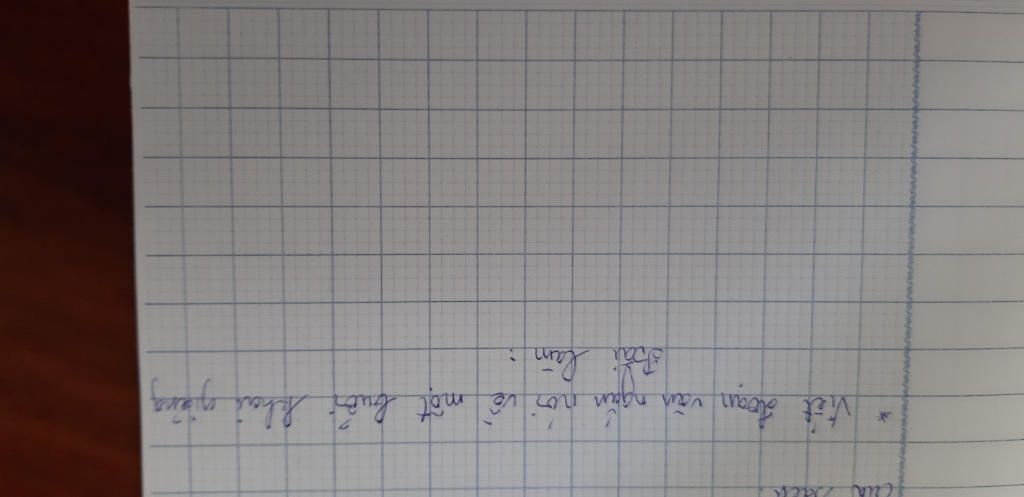 của sách.
* Viết đoạn văn ngắn nói về một buổi khai giảng
Bài làm: